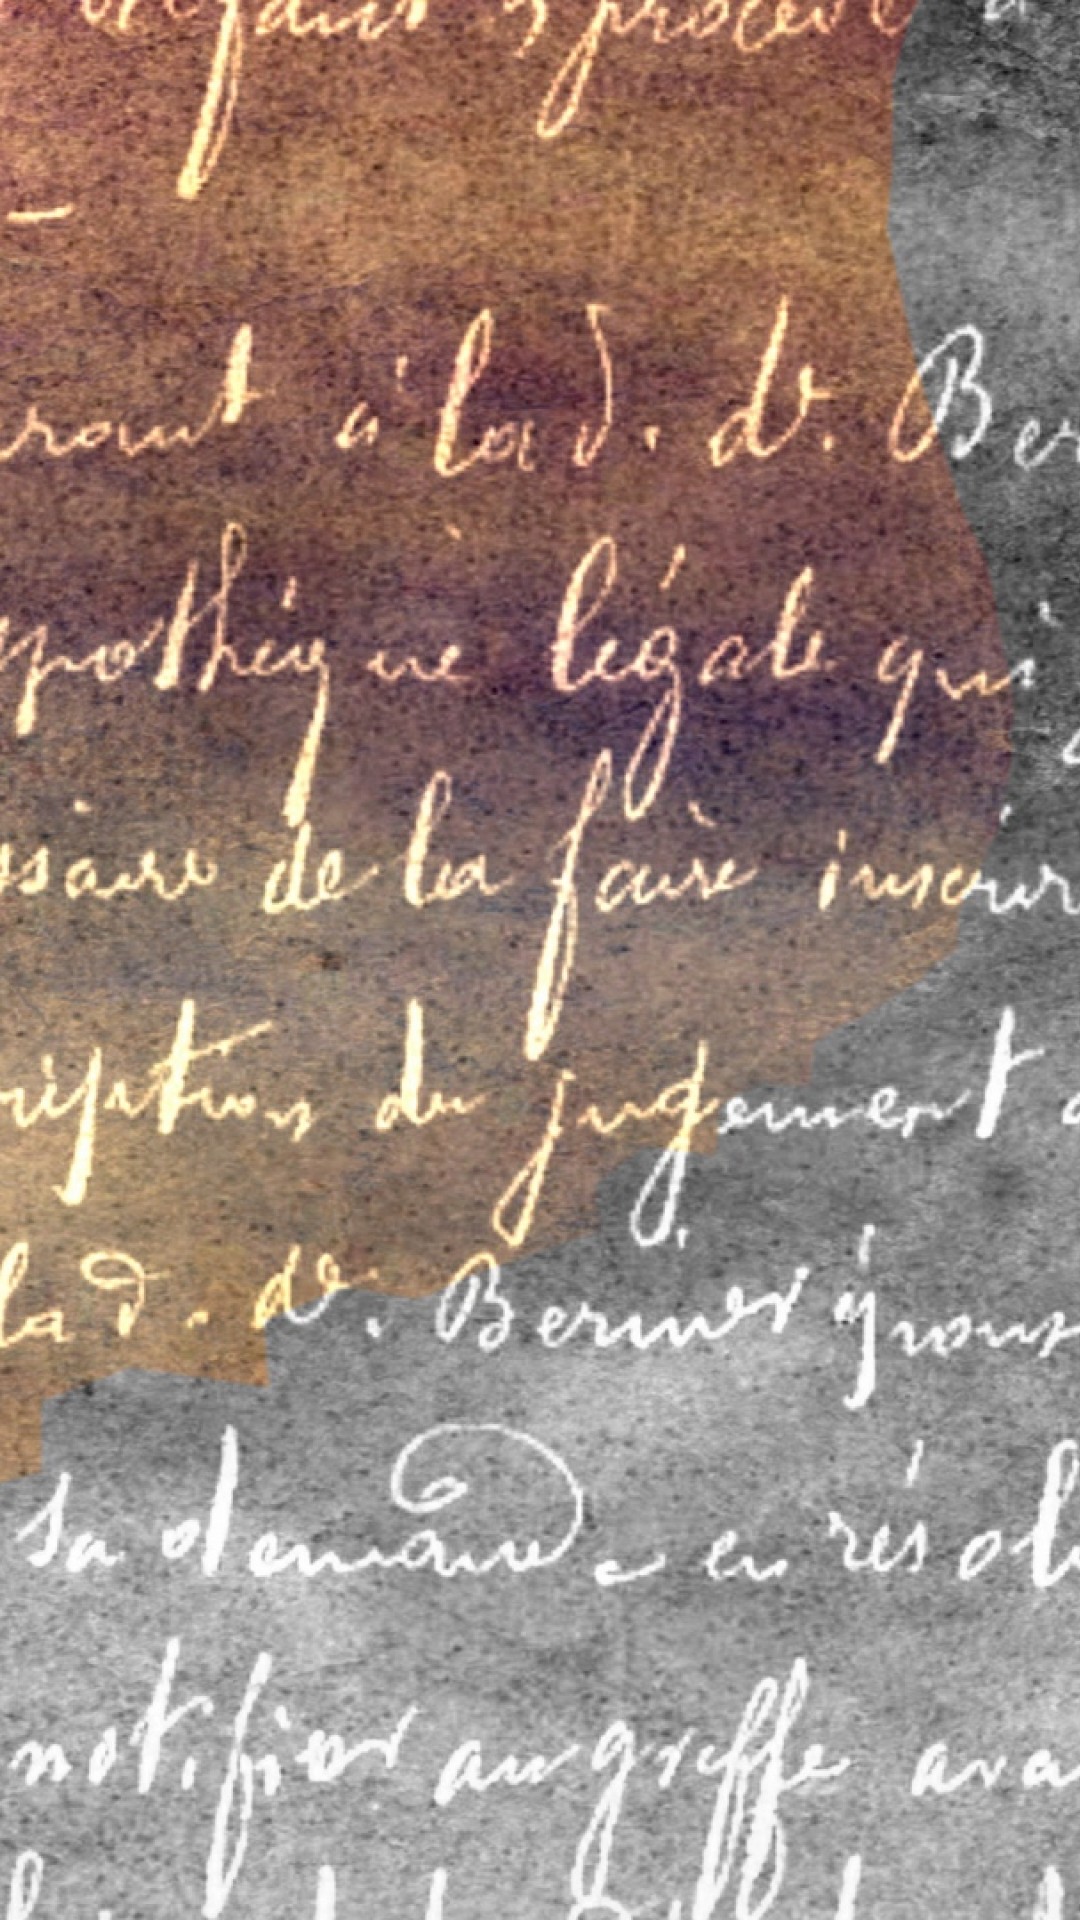 procéd
rant à la d. de. Ber
pothéque légale qui
ssaire de la faire inscrir
ription du jugement
la d. de. Bernier
sa demande en résol
notifier au greffe ava